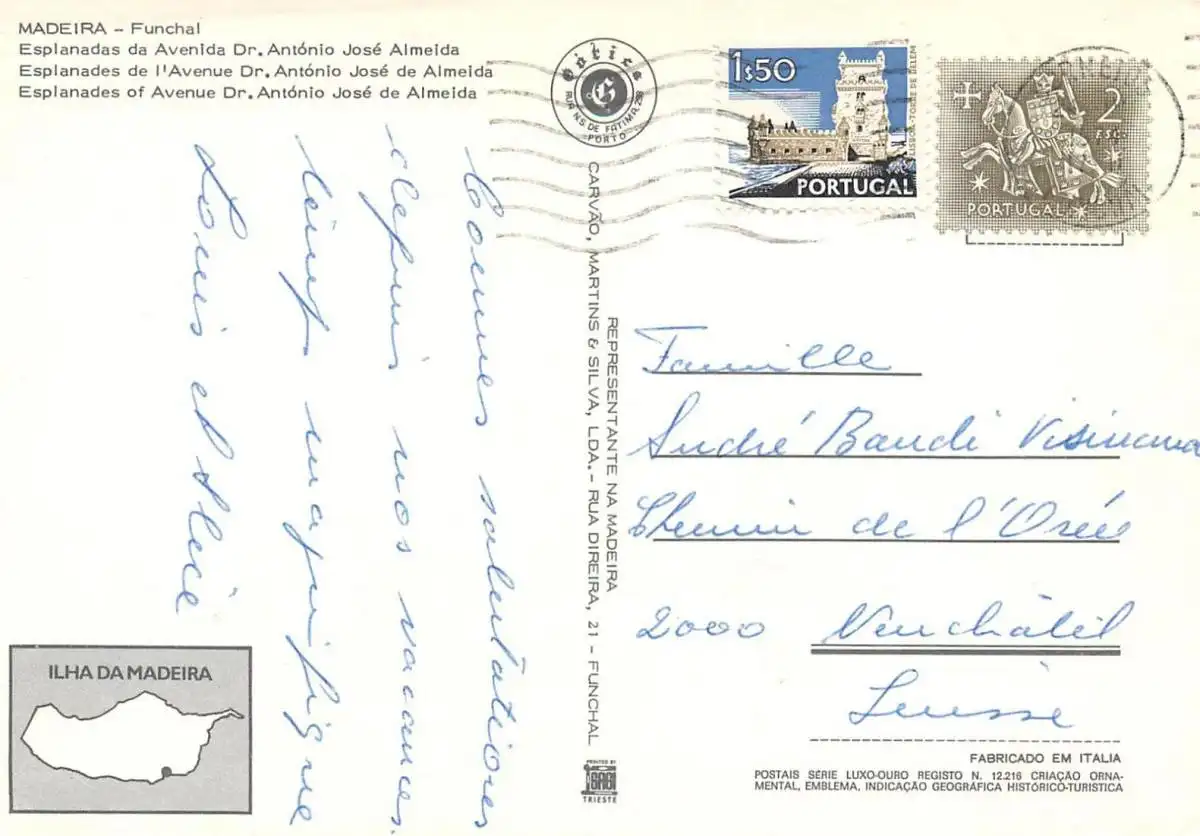 MADEIRA - Funchal
Esplanadas da Avenida Dr. António José Almeida
Esplanades de l'Avenue Dr. António José de Almeida
Esplanades of Avenue Dr. António José de Almeida
Gótica
RUA N S DE FÁTIMA, 298
PORTO
G
1$50
PORTUGAL
LISBOA-TORRE DE BELEM
2
ESC.
PORTUGAL
Bonnes salutations
depuis nos vacances.
magnifique
Louis et Alice
REPRESENTANTE NA MADEIRA
CARVÃO, MARTINS & SILVA, LDA. - RUA DIREIRA, 21 - FUNCHAL
Famille
André Bandi
Chemin de l'Orée
2000 Neuchâtel
Suisse
ILHA DA MADEIRA
PRINTED BY
TRIESTE
FABRICADO EM ITALIA
POSTAIS SÉRIE LUXO-OURO REGISTO N. 12.216 CRIAÇÃO ORNA-
MENTAL, EMBLEMA, INDICAÇÃO GEOGRÁFICA HISTÓRICO-TURISTICA